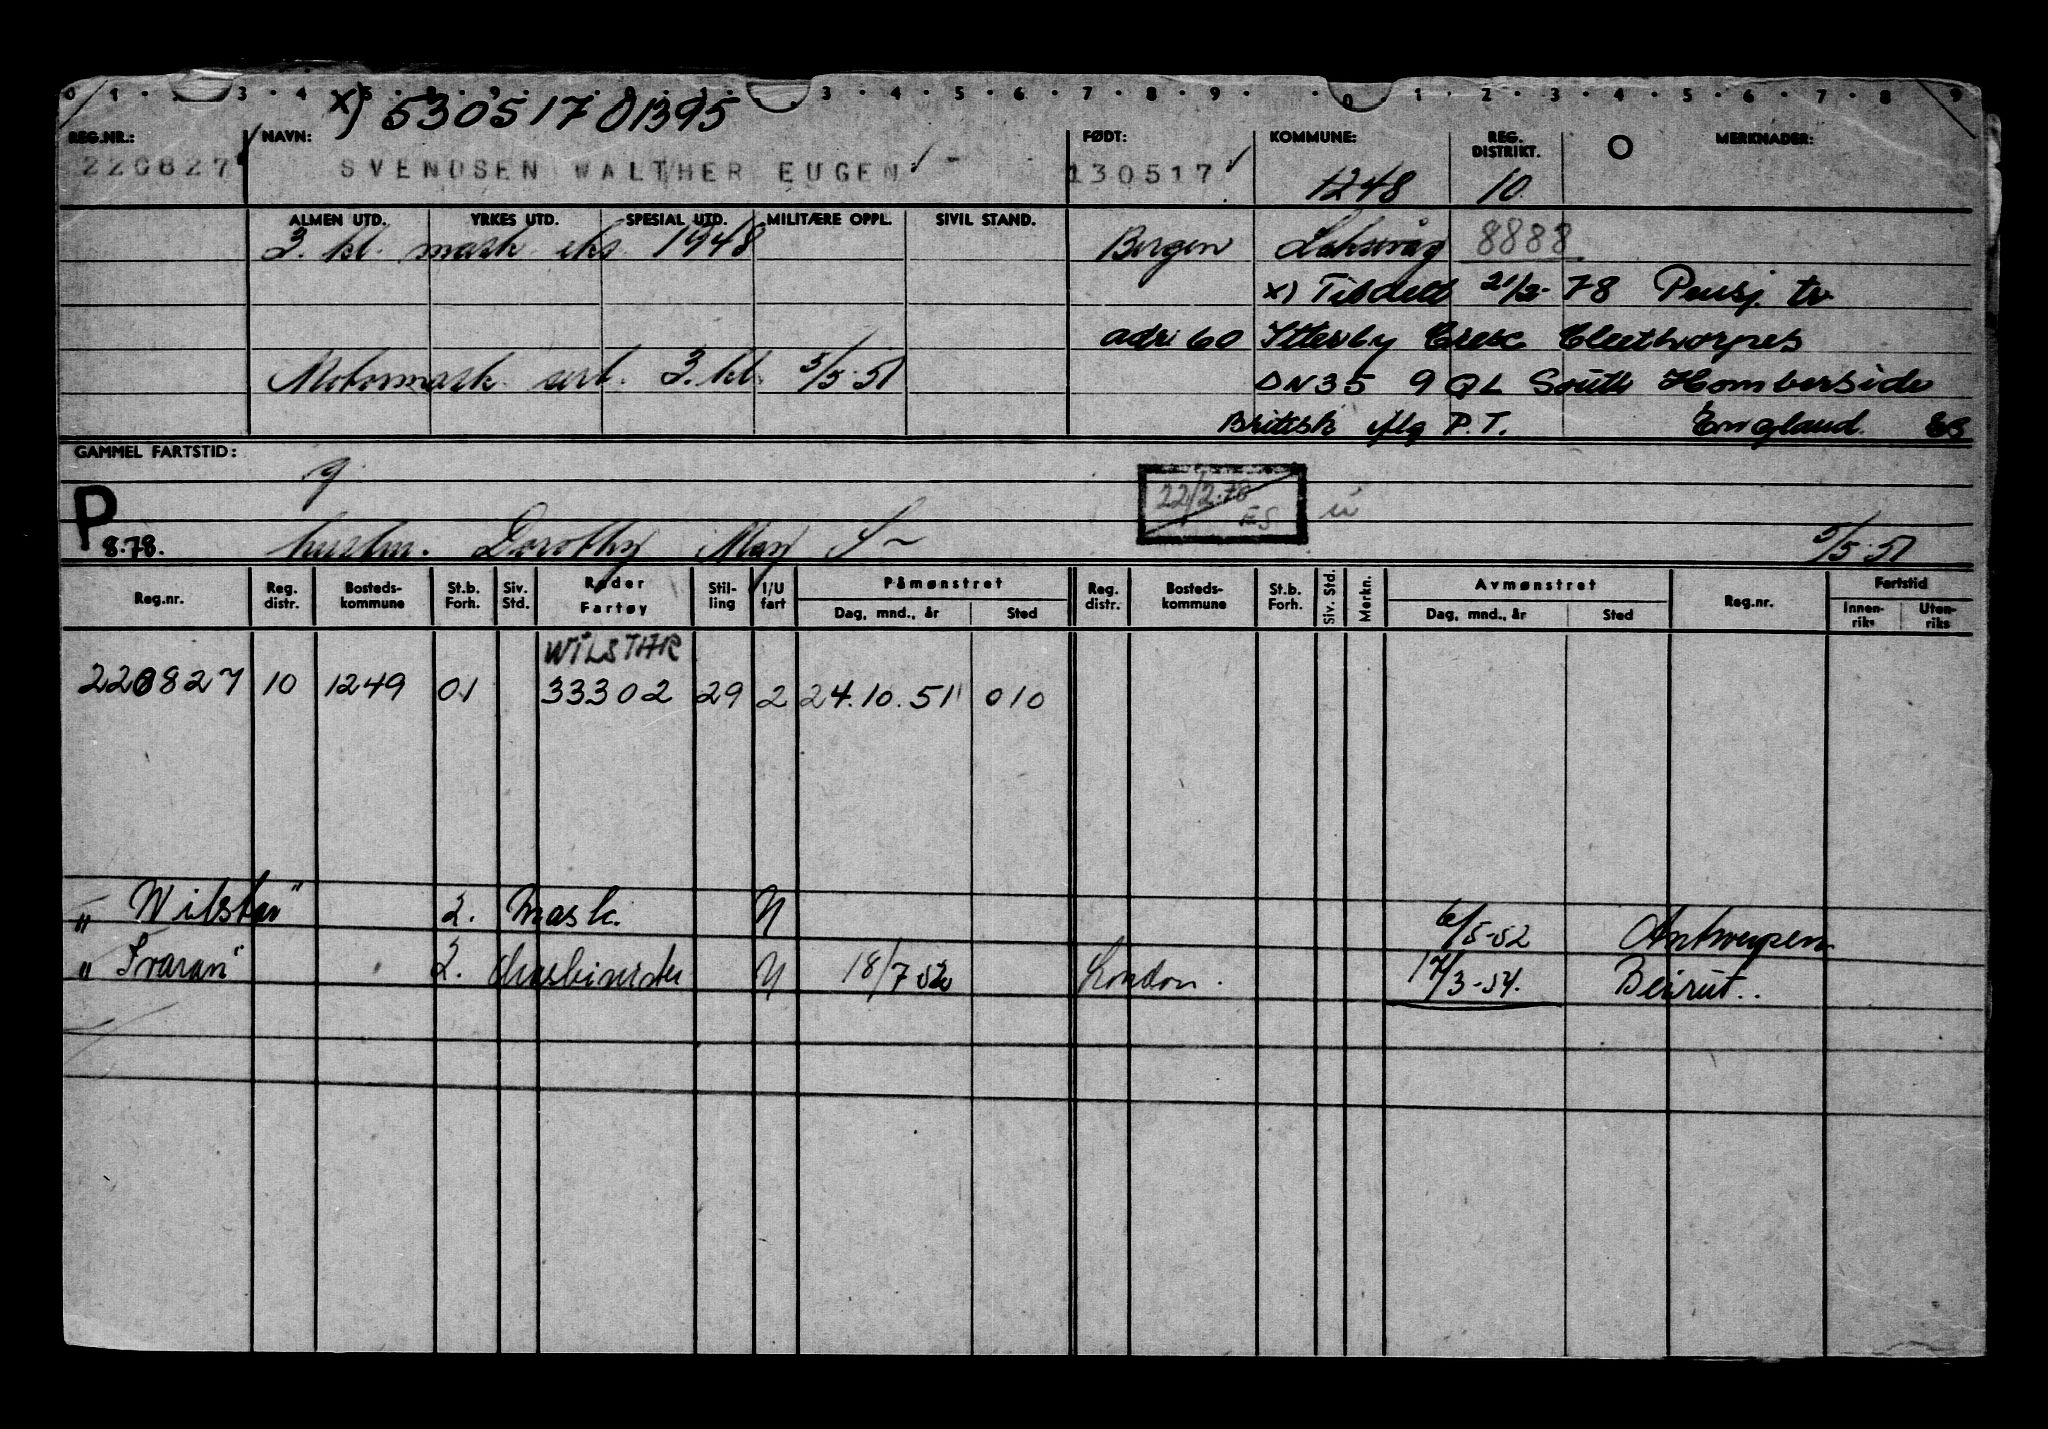 0 1 · 3 · 4 · 5 · 3 · 4 · 5 · 6 · 7 · 8 · 9 · · 0 · 1 · 2 · 3 · 4 · 5 · 6 · 7 · 8 9
x) 53051701395
REG.NR.: NAVN: FØDT: KOMMUNE: REG. DISTRIKT. O MERKNADER:
220827 SVENDSEN WALTHER EUGEN 130517 1248 10
ALMEN UTD. YRKES UTD. SPESIAL UTD. MILITÆRE OPPL. SIVIL STAND.
3. kl. mask eks 1948 Bergen Laksevåg 8888
x) Tildelt 21/2-78 Pensj. tr.
adr: 60 Itterby Cresc Cleethorpes
Motormask. sert. 3. kl. 5/5-51 DN35 9QL South Homberside
Britisk flg P.T. England. ES
GAMMEL FARTSTID:
9
22/2.78
ES
P
8.78.
hustru. Dorothy May S~ 5/5-51
Reg.nr. Reg. distr. Bosteds-kommune St.b. Forh. Siv. Std. Reder Fartøy Stil-ling I/U fart Påmønstret Dag, mnd., år Sted Reg. distr. Bosteds-kommune St.b. Forh. Siv. Std. Merkn. Avmønstret Dag, mnd., år Sted Reg.nr. Fartstid Innen-riks Uten-riks
WILSTAR
220827 10 1249 01 33302 29 2 24.10.51 010
" Wilstar" 2. mask. U 6/5-52 Antwerpen
" Ivaran" 2. Maskinister U 18/7 52 London. 17/3-54. Beirut.